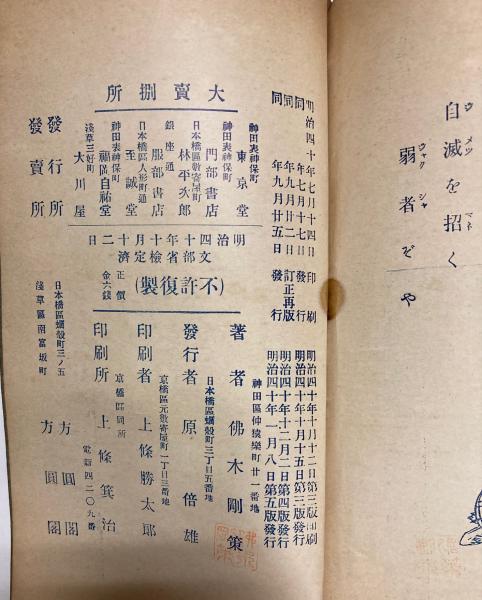 自滅を招く
弱者ぞや
明治四十年七月十四日印刷
同年七月十七日發行
同年九月廿二日訂正再版
同年九月廿五日發行
明治四十年十月十二日第三版印刷
明治四十年十月十五日第三版發行
明治四十年十二月二日第四版發行
明治四十一年一月八日第五版發行
大賣捌所
神田表神保町
東京堂
神田表神保町
門部書店
日本橋區數寄屋町
林平次郎
銀座通
服部書店
日本橋區人形町通
至誠堂
神田表神保町
福岡自祐堂
淺草三好町
大川屋
明治四十年十二月二日
文部省檢定濟
(不許復製)
正價
金六錢
神田區仲猿樂町廿一番地
著者 佛木剛策
日本橋區蠣殼町三丁目五番地
發行者 原倍雄
京橋區元數寄屋町一丁目三番地
印刷者 上條勝太郎
京橋區同所
印刷所 上條箕治
電話四二〇九番
發行所
日本橋區蠣殼町三ノ五
方圓閣
發賣所
淺草區南富坂町
方圓閣